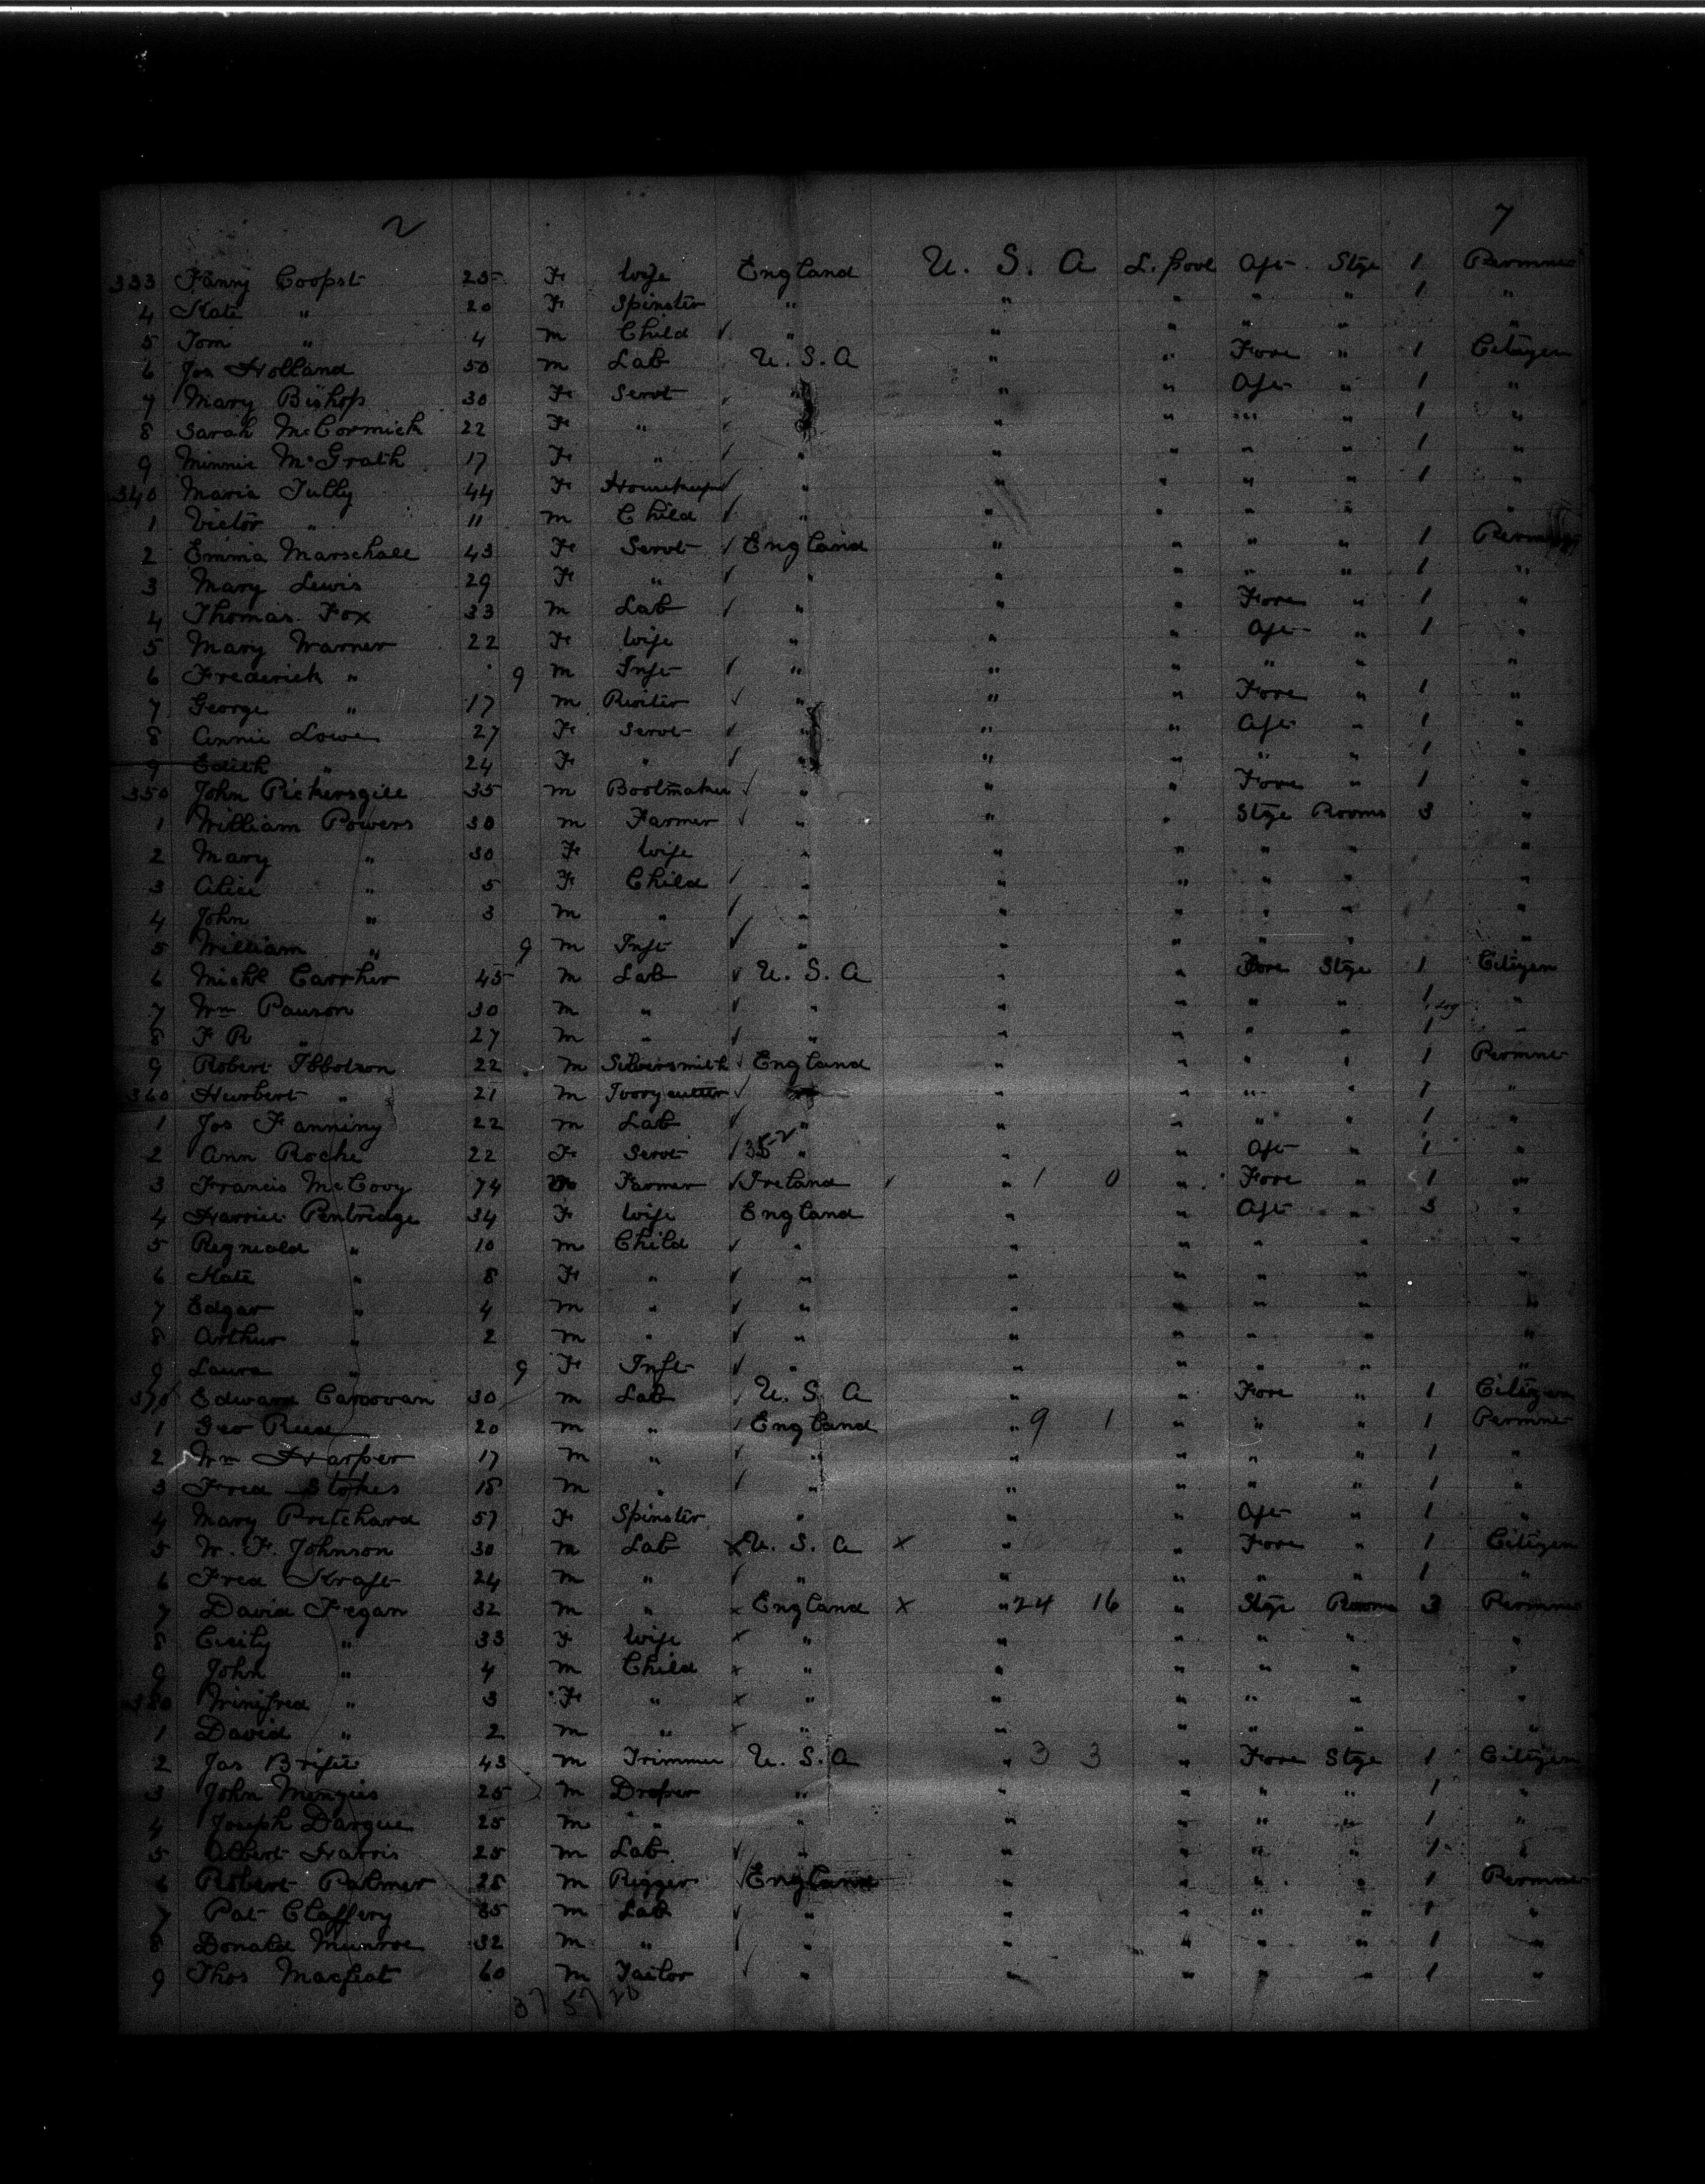 2 7
333 Fanny Coopst 25 F Wife England U. S. A L. pool Aft Stge 1 Permne
4 Kate " 20 F Spinster " " " " " 1 "
5 Tom " 4 m Child " " " " " "
6 Jos Holland 50 m Lab U. S. A " " Fore " 1 Citizen
7 Mary Bishop 30 F Servt " " " Aft " 1 "
8 Sarah McCormick 22 F " " " " " 1 "
9 Minnie McGrath 17 F " " " " " " 1 "
340 Maria Tully 44 F Housekeeper " " " " " 1 "
1 Victor " 11 m Child " " " " " "
2 Emma Marschall 43 F Servt England " " " " 1
3 Mary Lewis 29 F " " " " " " 1 "
4 Thomas Fox 33 m Lab " " " Fore " 1 "
5 Mary Warner 22 F Wife " " " Aft " 1 "
6 Frederick " 9 m Inft " " " " "
7 George " 17 m " " " Fore " 1 "
8 Annie Lowe 27 F Servt " " " Aft " 1 "
9 Edith " 24 F " " " " " " 1 "
350 John Pickersgill 35 m Bootmaker " " " Fore " 1 "
1 William Powers 30 m Farmer " " " Stge Rooms 3 "
2 Mary " 30 F Wife " " " " " "
3 Alice " 5 F Child " " " " " "
4 John " 3 m " " " " " " "
5 William " 9 m Inft " " " " " "
6 Michl Carrher 45 m Lab U. S. A " " Fore Stge 1 Citizen
7 Wm Pauson 30 m " " " " " " 1 "
8 F R " 27 m " " " " " " 1 "
9 Robert Ibbotson 22 m Silversmith England " " " " 1 Permne
360 Hurbert " 21 m Ivory cutter " " " " 1 "
1 Jos Fanning 22 m Lab " " " " " 1 "
2 Ann Roche 22 F Servt " " " Aft " 1 "
3 Francis McCovy 74 m Farmer Ireland " 1 0 " Fore " 1 "
4 Harriet Pentridge 34 F Wife England " " Aft " 3 "
5 Reginald " 10 m Child " " " " " "
6 Kate " 8 F " " " " " " "
7 Edgar " 4 m " " " " " " "
8 Arthur " 2 m " " " " " " "
9 Laura " 9 F Inft " " " " " "
370 Edward Canovan 30 m Lab U. S. A " " Fore " 1 Citizen
1 Geo Reed 20 m " England " 9 1 " " " 1 Permne
2 Wm Harper 17 m " " " " " " 1 "
3 Fred Stokes 18 m " " " " " " 1 "
4 Mary Pritchard 57 F Spinster " " " Aft " 1 "
5 W. F. Johnson 30 m Lab X U. S. A X " " Fore " 1 Citizen
6 Fred Kraft 24 m " " " " " " 1 "
7 David Fegan 32 m " x England X " 24 16 " Stge Rooms 3 Permne
8 Cecily " 33 F Wife x " " " " " "
9 John " 4 m Child x " " " " " "
380 Winifred " 3 F " x " " " " " "
1 David " 2 m " x " " " " " "
2 Jas 43 m Trimmer U. S. A " 3 3 " Fore Stge 1 Citizen
3 John Menzies 25 m Draper " " " " " 1 "
4 Joseph Dargue 25 m " " " " " " 1 "
5 Albert Harris 25 m Lab " " " " " 1 "
6 Robert Palmer 28 m Rigger England " " " " 1 Permne
7 Pat Claffery 35 m Lab " " " " " 1 "
8 Donald Munroe 32 m " " " " " " 1 "
9 Thos 60 m Tailor " " " " " 1 "
37 57 20